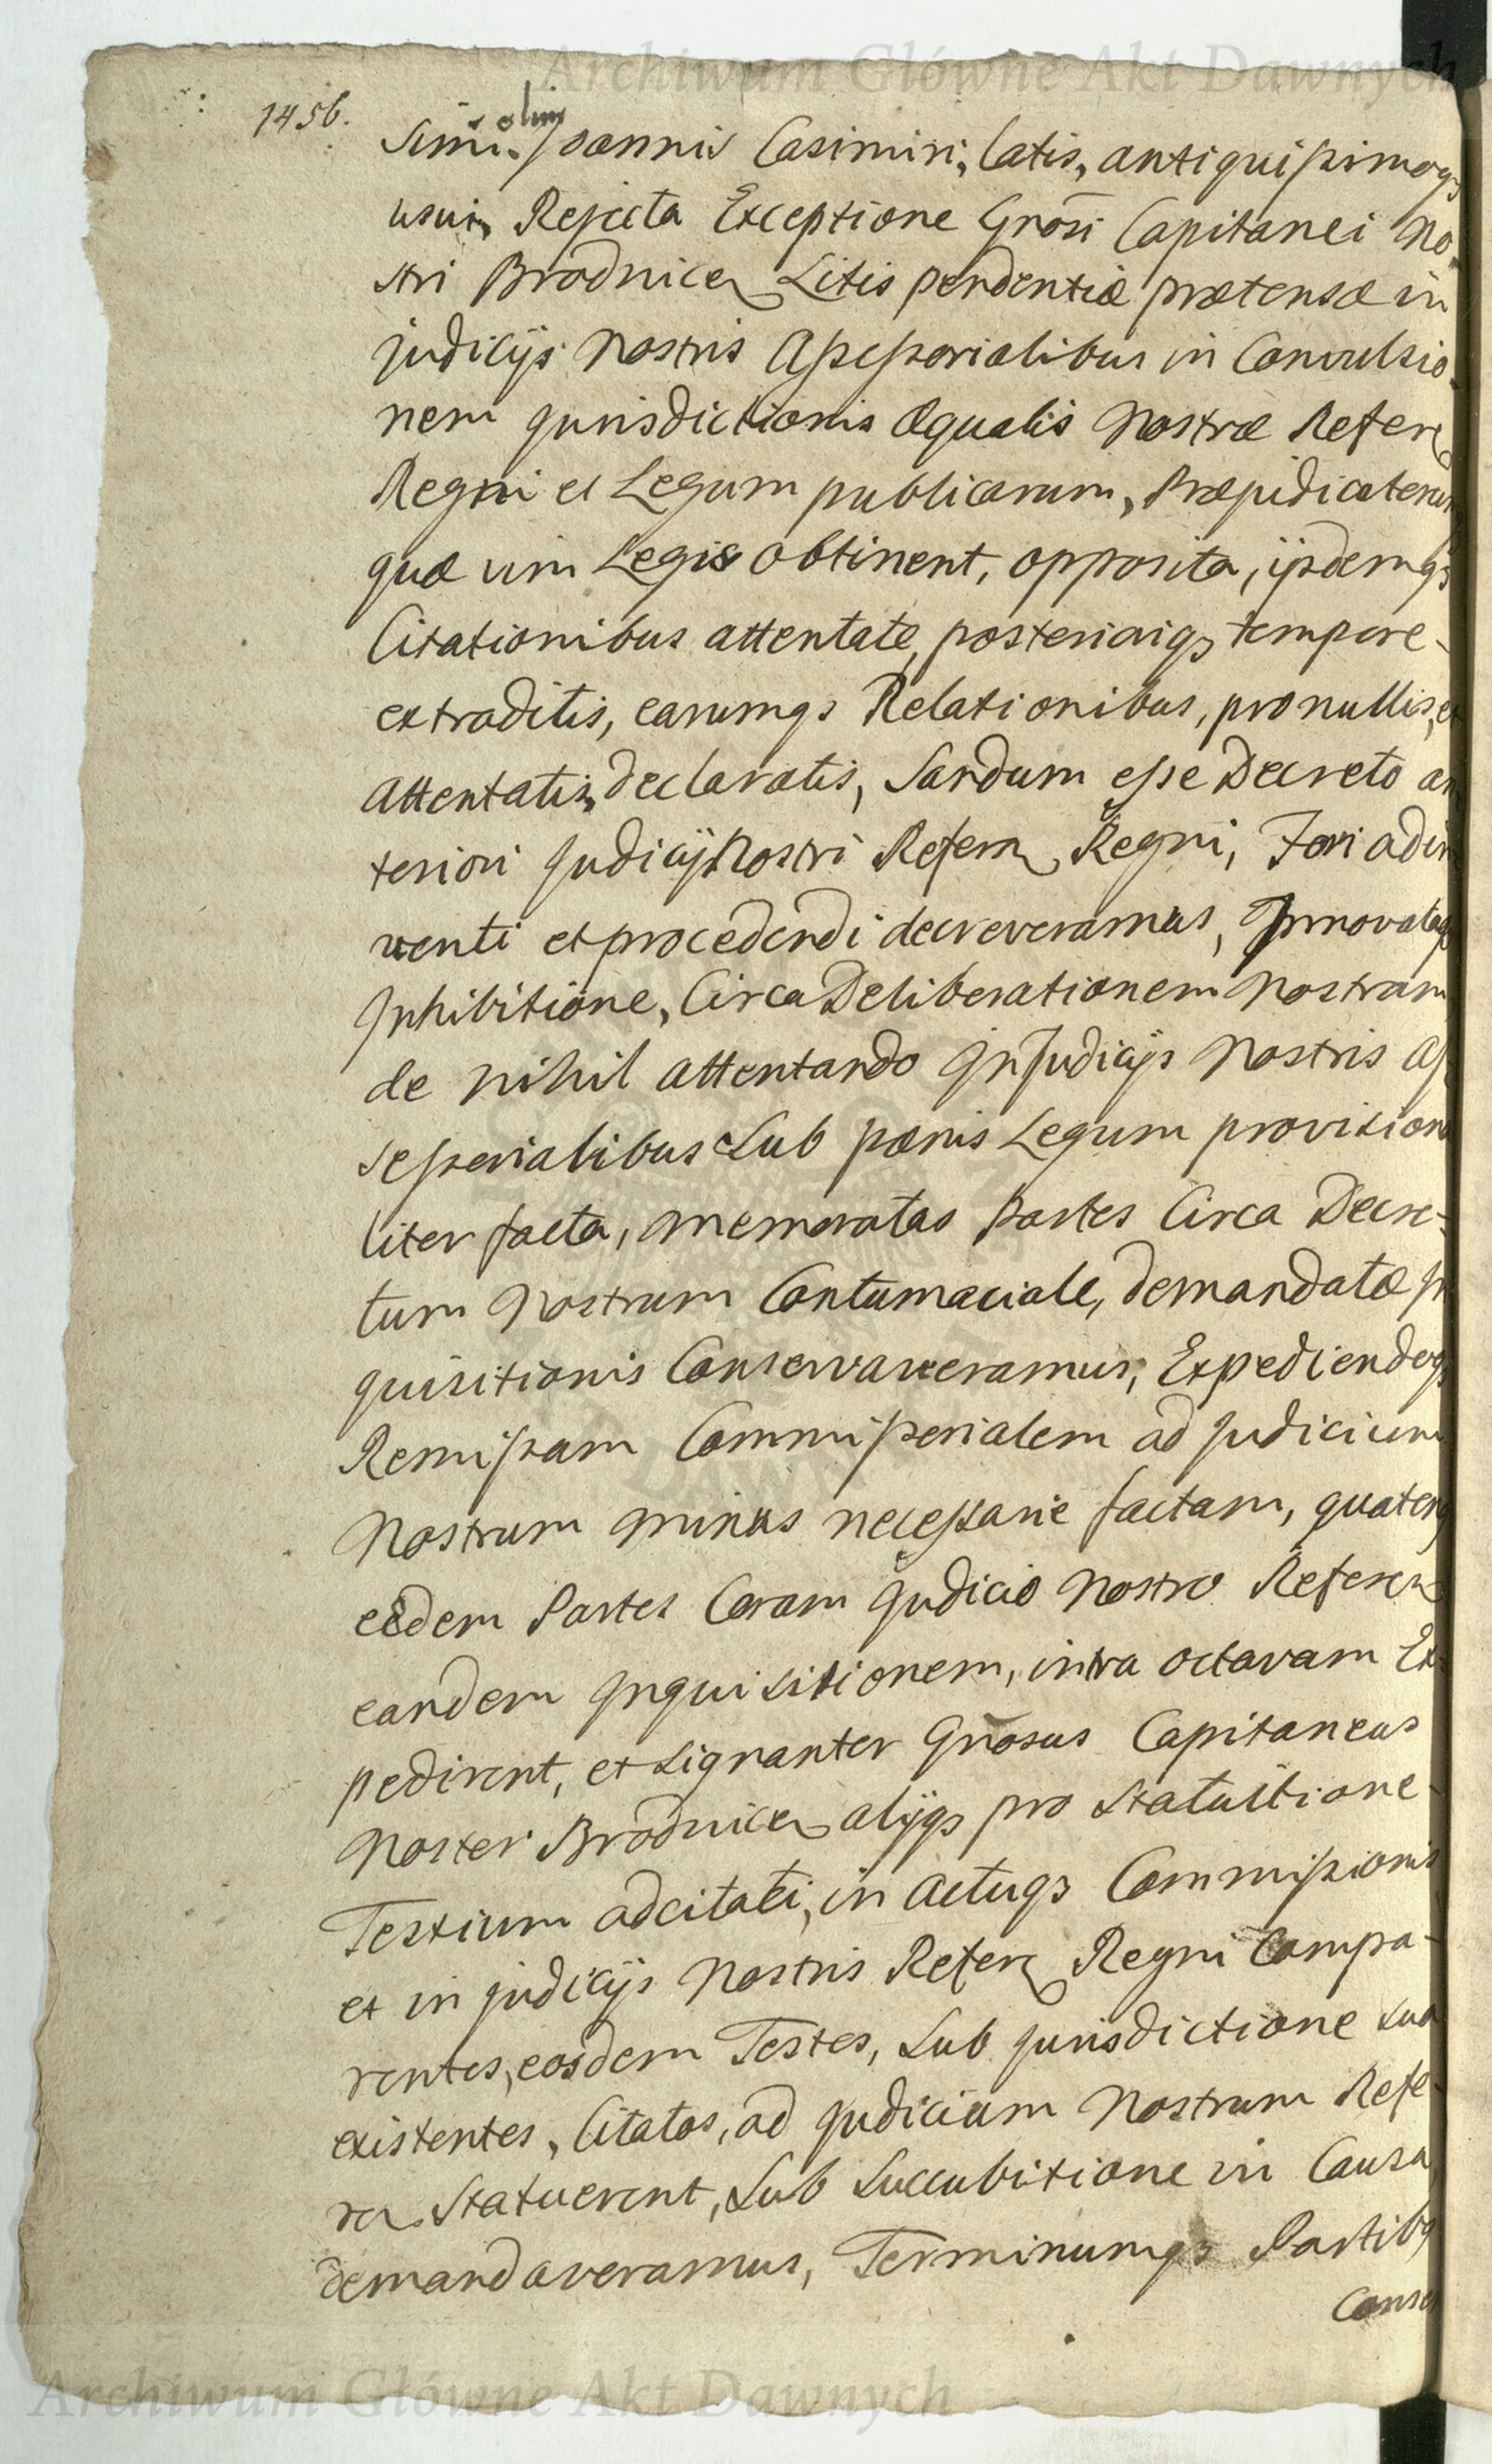 Archiwum Główne Akt Dawnych
1456.
olim
Simi. Joannis Casimiri, latis, antiquissimoqȝ
usui, Rejecta Exceptione Gnosi Capitanei No
stri Brodnicen Litis pendentiæ prætensæ in
judicijs Nostris Assessorialibus in Convulsio-
nem Jurisdictionis æqualis Nostræ Referen
Regni et Legum publicarum, Præjudicatorum
quæ vim Legis obtinent, opposita, ijsdemqȝ
Citationibus attentate, posterioriqȝ tempore-
extraditis, earumqȝ Relationibus, pro nullis, et
attentatis, declaratis, Standum esse Decreto an
teriori Judicij Nostri Referen Regni, Fori adin
venti et procedendi decreveramus, Innovataqȝ
Inhibitione, Circa Deliberationem Nostram
de nihil attentando In Judicijs Nostris As
sessorialibus Sub pœnis Legum provisiona
liter facta, memoratas Partes Circa Decre-
tum Nostrum Contumaciale, demandatæ In
quisitionis Conservaveramus, Expediendoqȝ
Remissam Commisserialem ad Judicium
Nostrum minus necessarie factam, quatenȝ
eædem Partes Coram Judicio Nostro Referen
eandem Inquisitionem, intra octavam Ex
pedirent, et signanter Gnosus Capitaneus
Noster Brodnicen alijqȝ pro Statuitione-
Testium adcitati, in actuqȝ Commissionis
et in judicijs Nostris Referen Regni Compa-
rentes, eosdem Testes, Sub jurisdictione sua
existentes, Citatos, ad Judicium Nostrum Refe-
ren Statuerent, Sub Succubitione in Causa,
demandaveramus, Terminumqȝ Partibȝ
Conser
Archiwum Główne Akt Dawnych